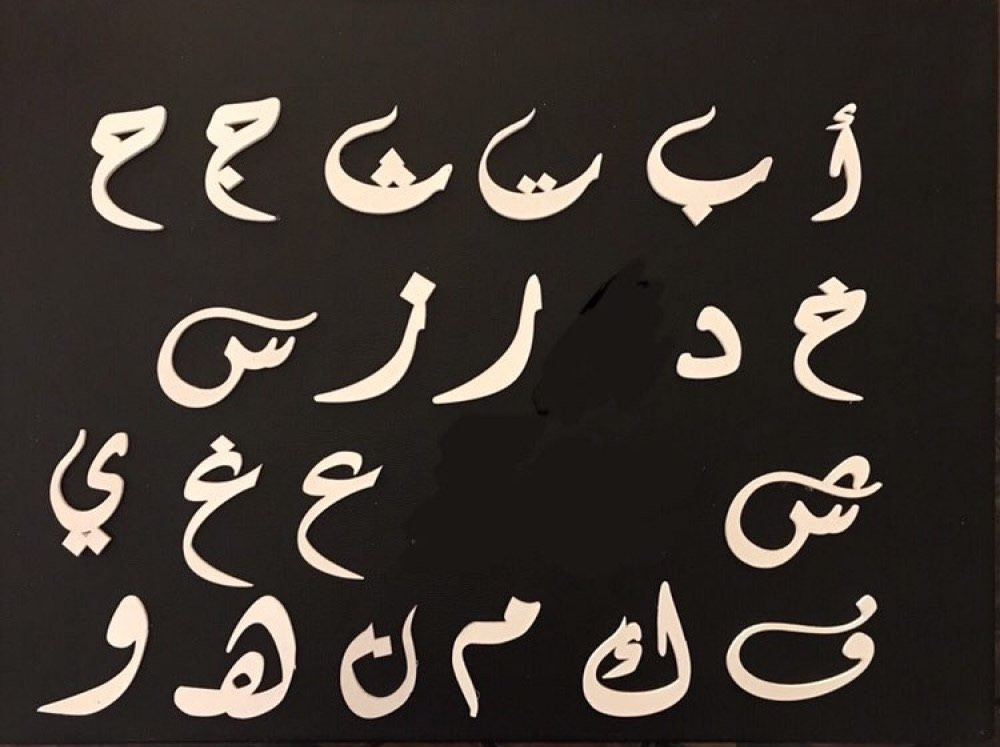 أ ب ت ث ج ح
خ د ر ز س
ش ع غ ي
ف ك م ن ه و